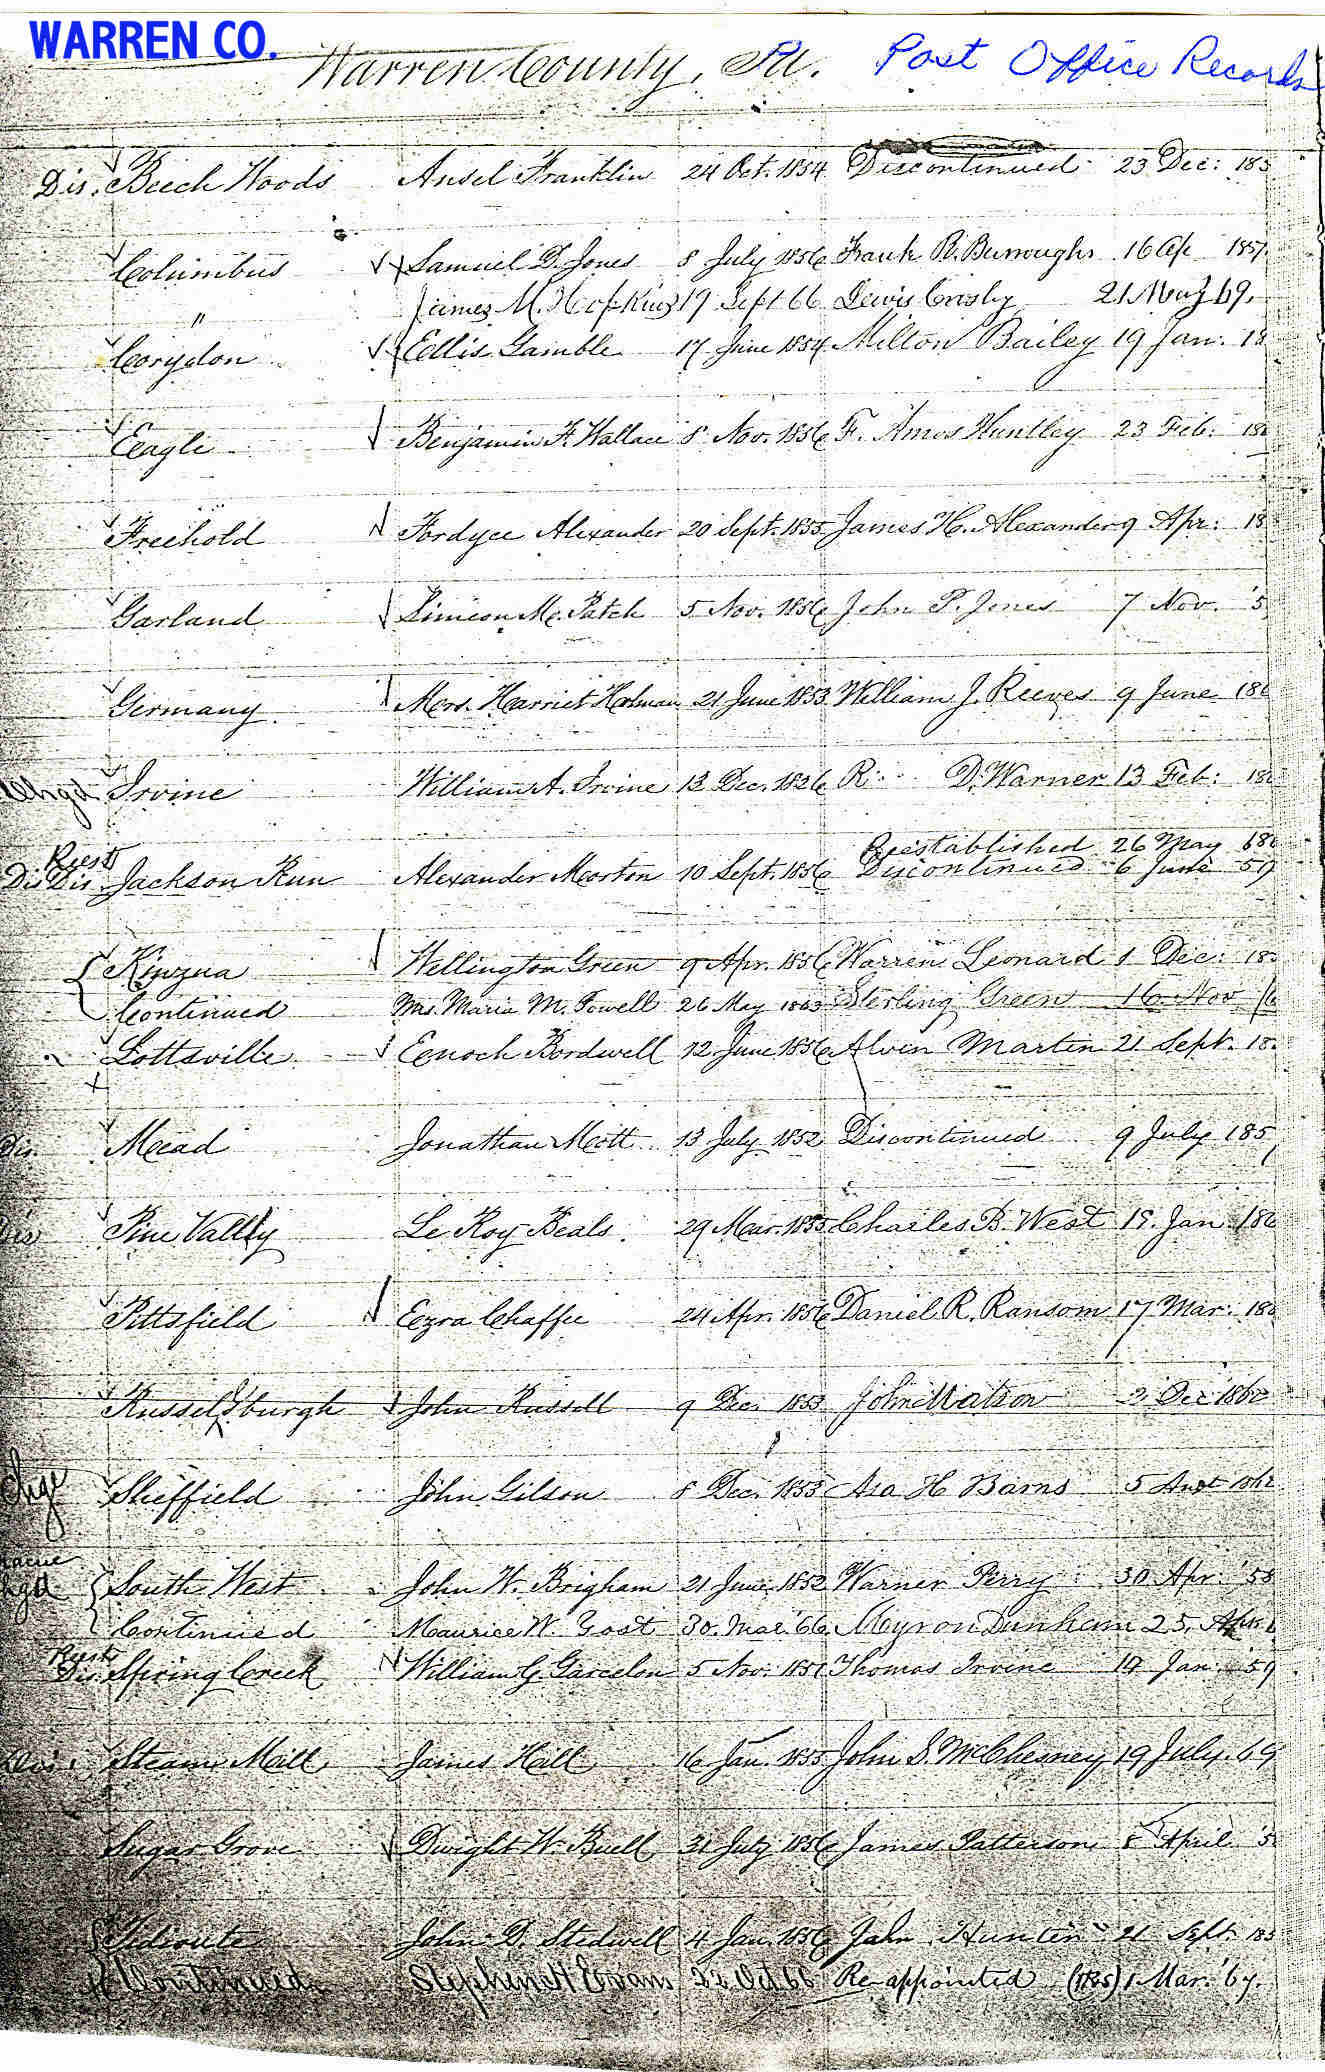 WARREN CO.
Warren County, Pa. Post Office Records
Dis. Beech Woods Ansel Franklin 24 Oct. 1854 Discontinued 23 Dec: 185
Columbus Samuel D. Jones 8 July 1856 Frank R. Burroughs 16 Ap 1857.
" James M. Hopkins 19 Sept 66 Lewis Crosby 21 May 69.
Corydon Ellis Gamble 17 June 1854 Milton Bailey 19 Jan: 18
Eagle Benjamin F. Wallace 8 Nov. 1856 F. Amos Huntley 23 Feb: 186
Freehold Fordyce Alexander 20 Sept. 1855 James H. Alexander 9 Apr: 18
Garland Simeon Mc. Patch 5 Nov. 1856 John P. Jones 7 Nov. '5
Germany Mrs. Harriet Holman 21 June 1853 William J. Reeves 9 June 186
Chgd Irvine William A. Irvine 12 Dec. 1826 R. D. Warner 13 Feb: 186
Reest Reestablished 26 May 186
Dis Dis Jackson Run Alexander Morton 10 Sept. 1856 Discontinued 6 June 59
Kinzua Wellington Green 9 Apr. 1856 Warren Leonard 1 Dec: 18
Continued Mrs. Maria M. Towell 26 May 1863 Sterling Green 16 Nov
Lottsville Enoch Bordwell 12 June 1856 Alvin Martin 21 Sept. 18
Dis. Mead Jonathan Mott 13 July 1852 Discontinued 9 July 185
Dis Pine Vally Le Roy Beals. 29 Mar. 1855 Charles B. West 18. Jan 186
Pittsfield Ezra Chaffee 24 Apr. 1856 Daniel R. Ransom 17 Mar: 186
Russelsburgh John Russell 9 Dec. 1853 John Matson 2 Dec 1860
Chge Sheffield John Gilson 8 Dec. 1853 Asa H Barns 5 1862
name
hgd South West John W. Brigham 21 June 1852 Warner Perry 30 Apr. '58
Continued Maurice W. Gost 30. Mar. '66 Myron Dunham 25. Apr.
Reest
Dis. Spring Creek William G. Garcelon 5 Nov. 1851 Thomas Irvine 14 Jan. '59
Dis. Steam Mill James Hall 16 Jan. 1855 John S. McChesney 19 July. 69
Sugar Grove Dwight W. Buell 31 July 1856 James Patterson 8 April '5
Tidioute John D. Stedwell 4 Jan. 1856 John Hunter 21 Sept. 185
Continued Stephen H Evans Oct. 66 Re-appointed 1 Mar. '67.